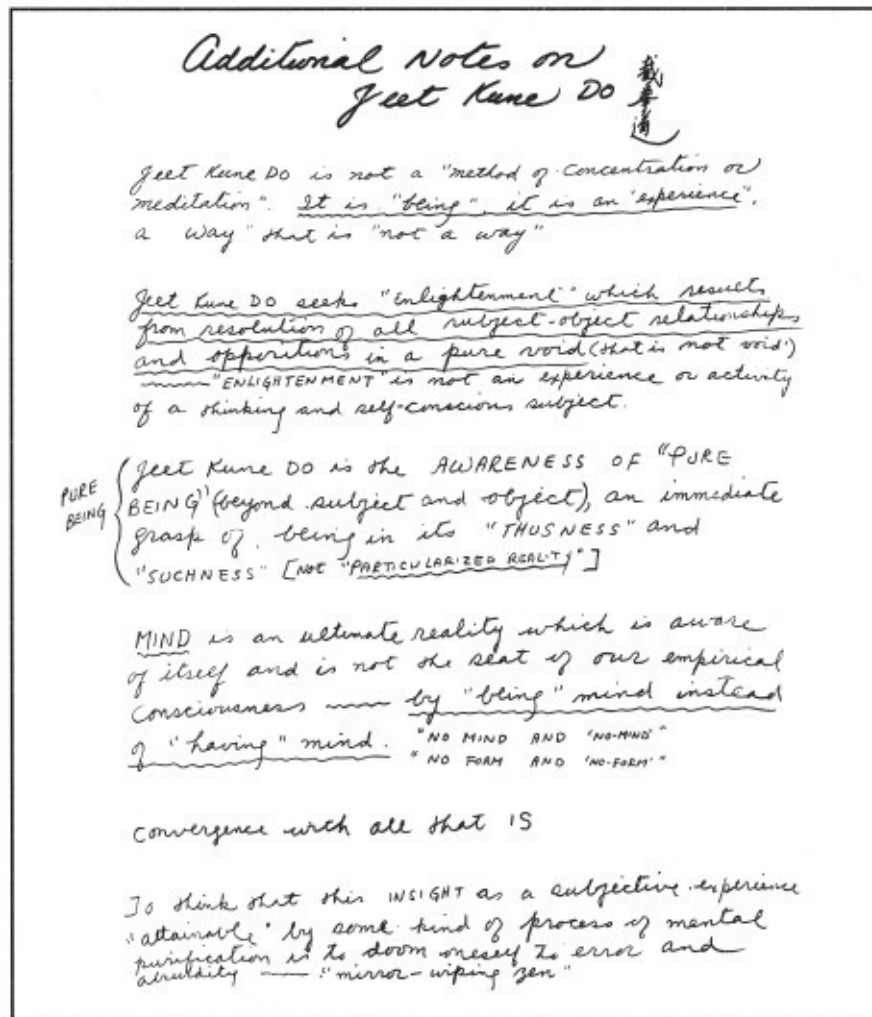 Additional Notes on
Jeet Kune Do 截拳道
Jeet Kune Do is not a "method of concentration or
meditation". It is "being", it is an "experience",
a way" that is "not a way"
Jeet Kune Do seeks "Enlightenment" which results
from resolution of all subject-object relationships
and oppositions in a pure void (that is not void')
"ENLIGHTENMENT" is not an experience or activity
of a thinking and self-conscious subject.
PURE
BEING
Jeet Kune Do is the AWARENESS OF "PURE
BEING" (beyond subject and object), an immediate
grasp of being in its "THUSNESS" and
"SUCHNESS" [NOT "PARTICULARIZED REALITY"]
MIND is an ultimate reality which is aware
of itself and is not the seat of our empirical
consciousness — by "being" mind instead
of "having" mind.
"NO MIND AND 'NO-MIND'"
"NO FORM AND 'NO-FORM'"
Convergence with all that IS
To think that this INSIGHT as a subjective experience
"attainable" by some kind of process of mental
purification is to doom oneself to error and
absurdity — "mirror-wiping zen"